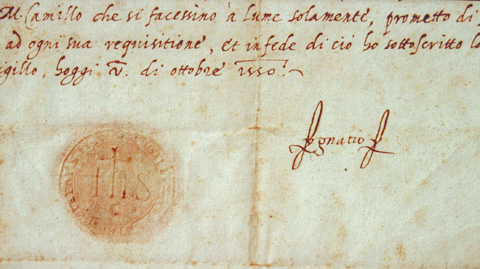 M. Camillo che si facessino à lume solamente, prometto di
ad ogni sua requisitione, et in fede di ciò ho sottoscritto lo
igillo, hoggi V. di ottobre 1550.
Ignatio
IHS